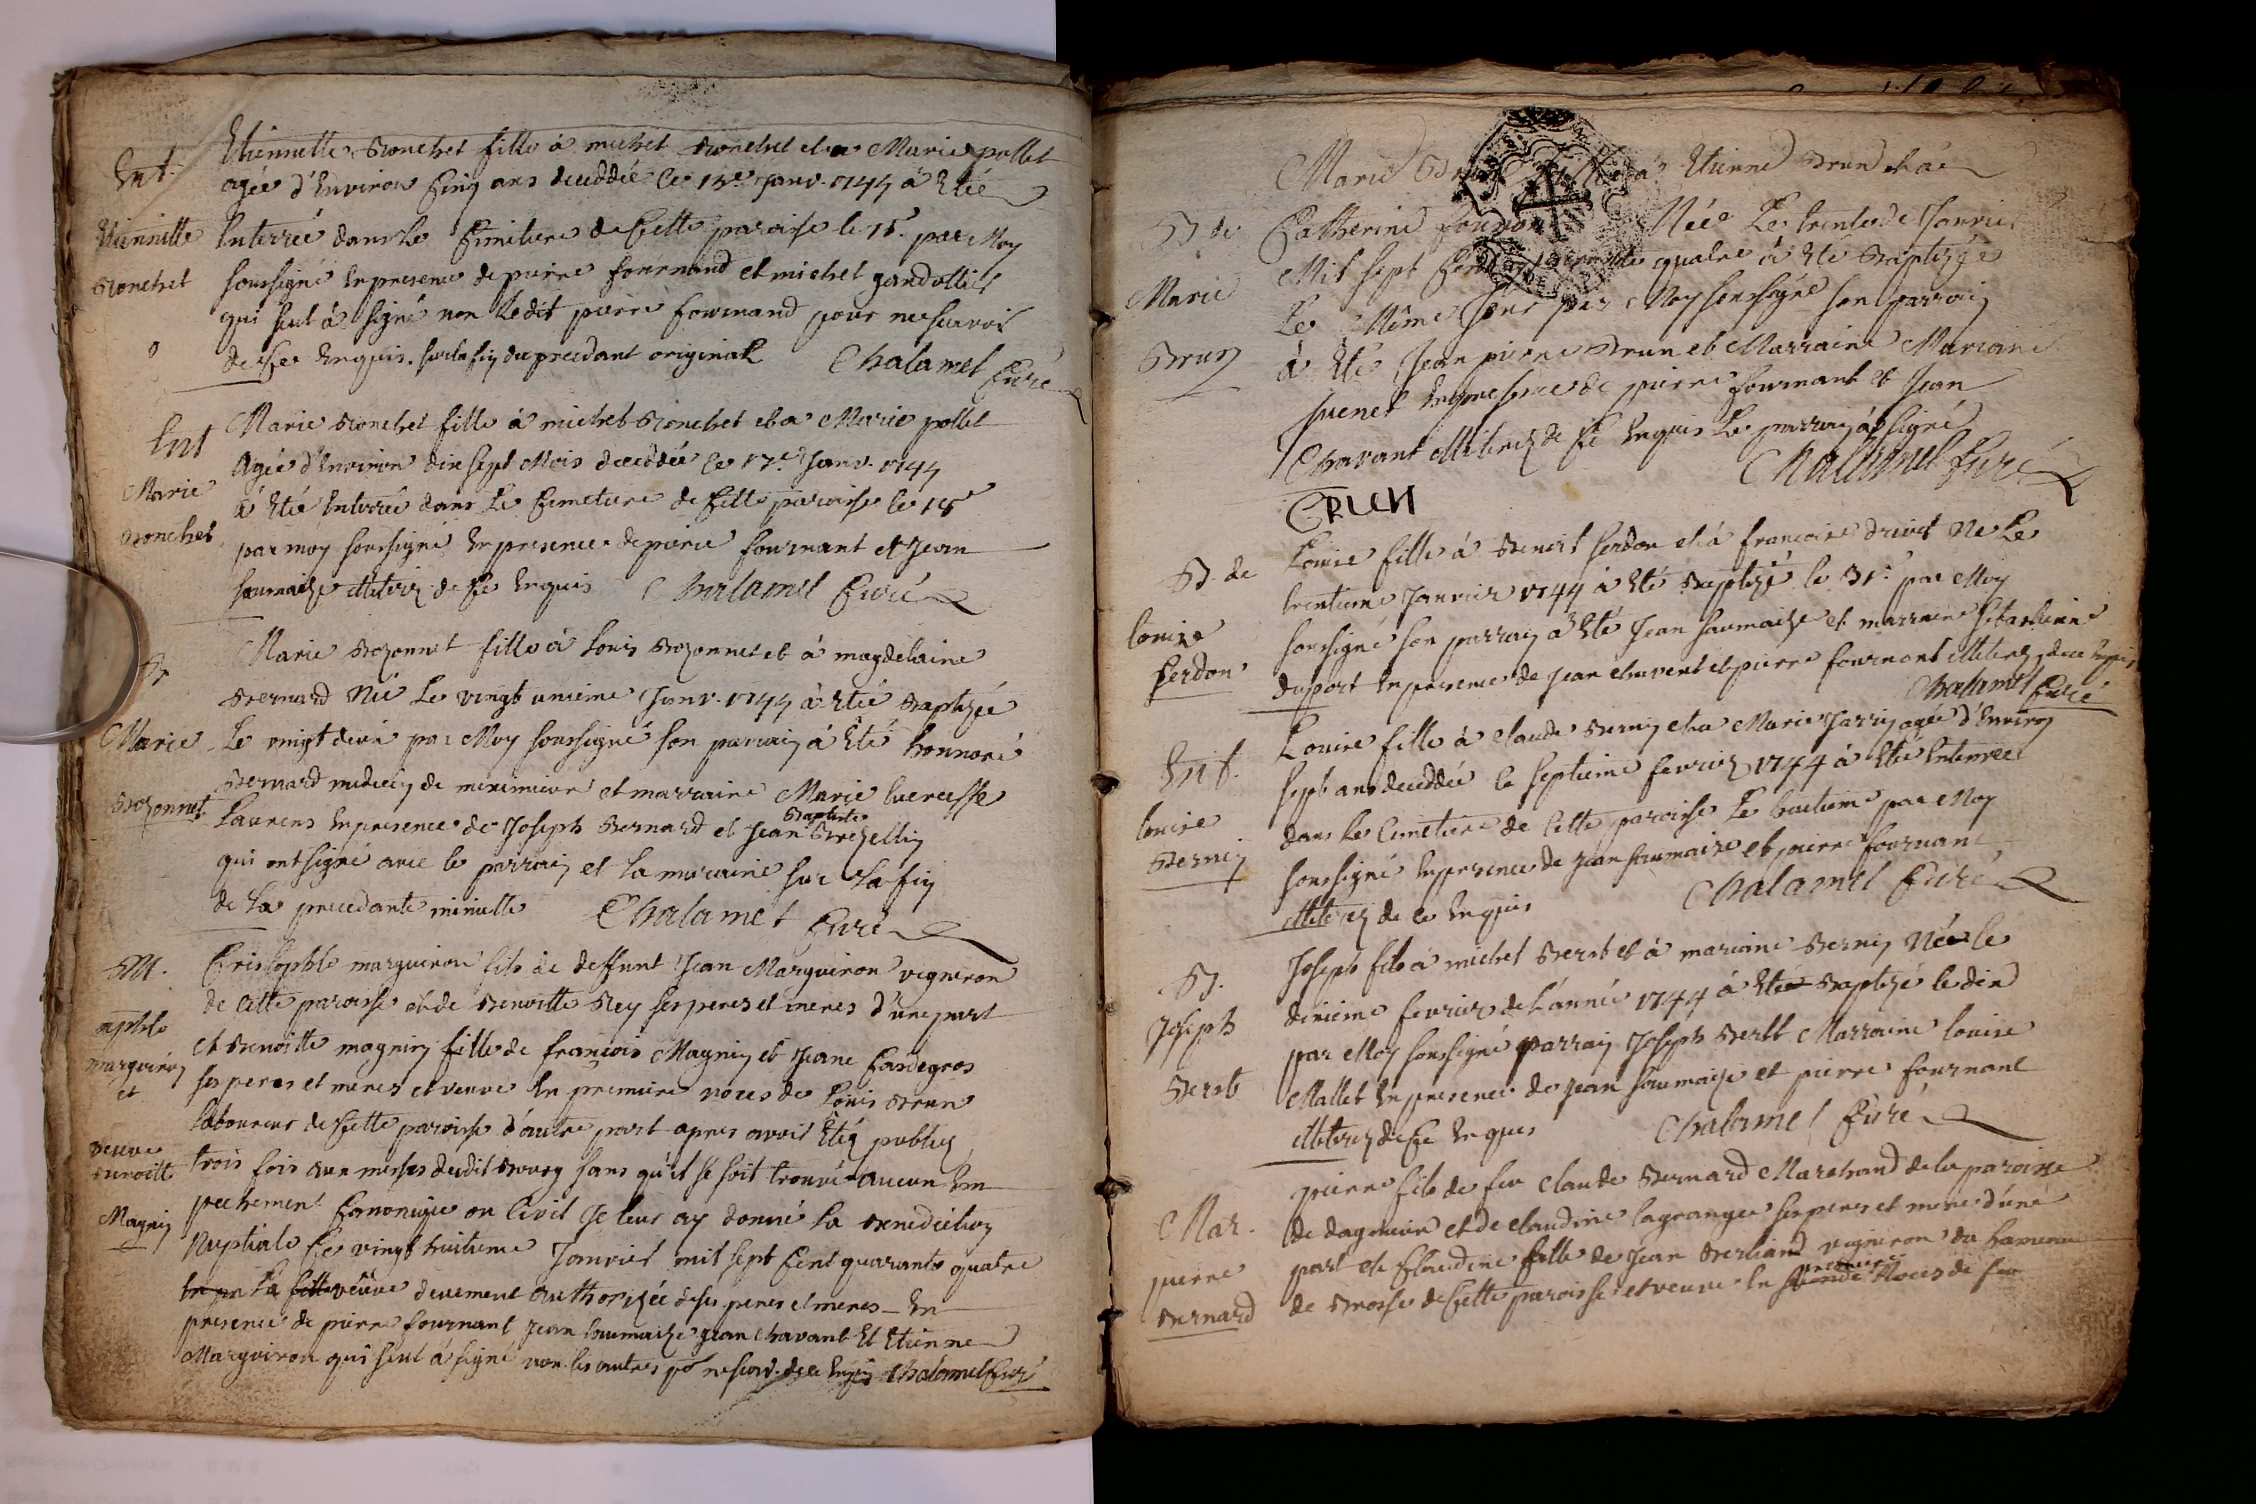 Ent.
Etiennette Bronchet fille à michel Bronchet et a Marie pollet
agée d'Environ Cinq ans decedée le 15e Janv. 1744 à Eté
Etiennette
Bronchet
Enterrée dans Le Cimetiere de Cette paroisse le par Moy
soussigné En presence de pierre fournand et michel gandollier
qui seul à signé non Ledit pierre fournand pour ne scavoir
de Ce Enquis. sur la fin du precedant original Chalamel Curé
Ent
Marie
Bronchet
Marie Bronchet fille à michel Bronchet et a Marie pollet
Agée d'Environ dix sept Mois decedée le 17e Janv. 1744
à Eté Enterrée dans Le Cimetiere de Cette paroisse le 18e
par moy soussigné En presence de pierre fournant et Jean
saumaize Illiterez de Ce Enquis Chalamel Curé
B
Marie
Bozonnet
Marie Bozonnet fille à Louis Bozonnet et à magdelaine
Bernard Née Le vingt unieme Janv. 1744 à Eté Baptizée
Le vingt deux par Moy soussigné son parrain à Eté honnoré
Bernard medecin de meximieux et marraine Marie lucresse
Laurens En presence de Joseph Bernard et Jean Baptiste
qui ont signé avec le parrain et La marraine sur La fin
de La precedante minutte Chalamel Curé
M.
marguiron
et
veuve
Benoitte
Magnin
Cristophle marguiron fils de deffunt Jean Marguiron vigneron
de Cette paroisse et de Benoitte Rey ses peres et meres d'une part
et Benoitte magnin fille de françois Magnin et Jeane
ses peres et meres et veuve En premiere noces de Louis Brun
Laboureur de Cette paroisse d'autre part apres avoir Eté publiez
trois fois aux messes dudit Bourg sans qu'il se soit trouvé aucun Em
pechement Canonique ou Civil Je leur ay donné La Benediction
Nuptiale Ce vingt huitieme Janvier mil sept Cent quarante quatre
La fille veuve deuement authorizée de ses peres et meres En
presence de pierre fournant Jean saumaize Jean Chavant Et Etienne
Marguiron qui seul à signé non les autres po ne scav. de ce Enquis Chalamel Curé
B de
Marie
Brun
Marie Brun à Etienne Brun et à
Catherine Née Le trente de Janvier
Mil sept Cent quarante quatre à Eté Baptizée
Le Même Jour par Moy soussigné son parrain
à Eté Jean pierre Brun et Marraine Mariane
En presence de pierre fournant et Jean
Chavant Illiterez de Ce Enquis Le parrain à signé
Chalamel Curé
B. de
louise
Ferdon
Louise fille à Benoit ferdon et à francoise Né Le
trentieme Janvier 1744 à Eté Baptizé le 31e par Moy
soussigné son parrain à Eté Jean saumaize et marraine
duport En presence de Jean chavent et pierre fournant Illiterez de ce Enquis
Chalamel Curé
Ent.
louise
Bernin
Louise fille à claude Bernin et a Marie Jarrin agée d'Environ
sept ans decedée le septieme fevrier 1744 à Eté Enterrée
dans Le Cimetiere de Cette paroisse Le huitieme par Moy
soussigné En presence de Jean saumaize et pierre fournant
Illiterez de ce Enquis Chalamel Curé
B.
Joseph
Joseph fils à michel et à mariane Bernin Né le
dixieme fevrier de L'année 1744 à Eté Baptizé le dix
par Moy soussigné parrain Joseph Marraine louise
Mallet En presence de Jean saumaize et pierre fournant
Illiterez de Ce Enquis Chalamel Curé
Mar.
pierre
Bernard
pierre fils de feu claude Bernard Marchand de la paroisse
de dagneux et de claudine lagrange ses peres et mere d'une
part et Claudine fille de Jean vigneron du hameau
de Brosse de Cette paroisse et veuve En premiere Noces de feu